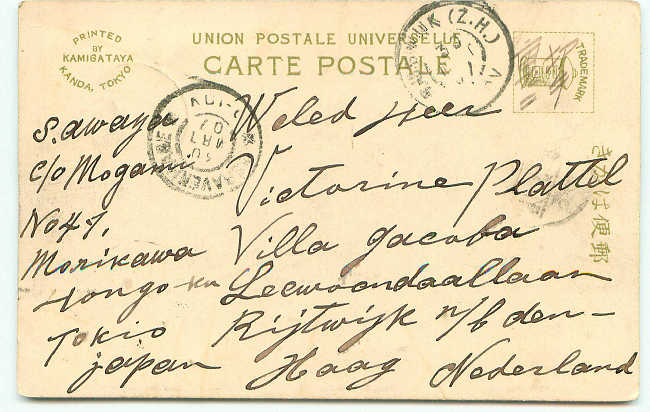 PRINTED
BY
KAMIGATAYA
KANDA, TOKYO
UNION POSTALE UNIVERSELLE
CARTE POSTALE
TRADEMARK
きかは便郵
S. awaya
c/o Mogami
No 47,
Morikawa
Hongo-ku
Tokio
japan
Weled Heer
Victorine Plattel
Villa Jacoba
Leewoondaallaan
Rijtwijk n/b den-
Haag Nederland
(Z.H.)